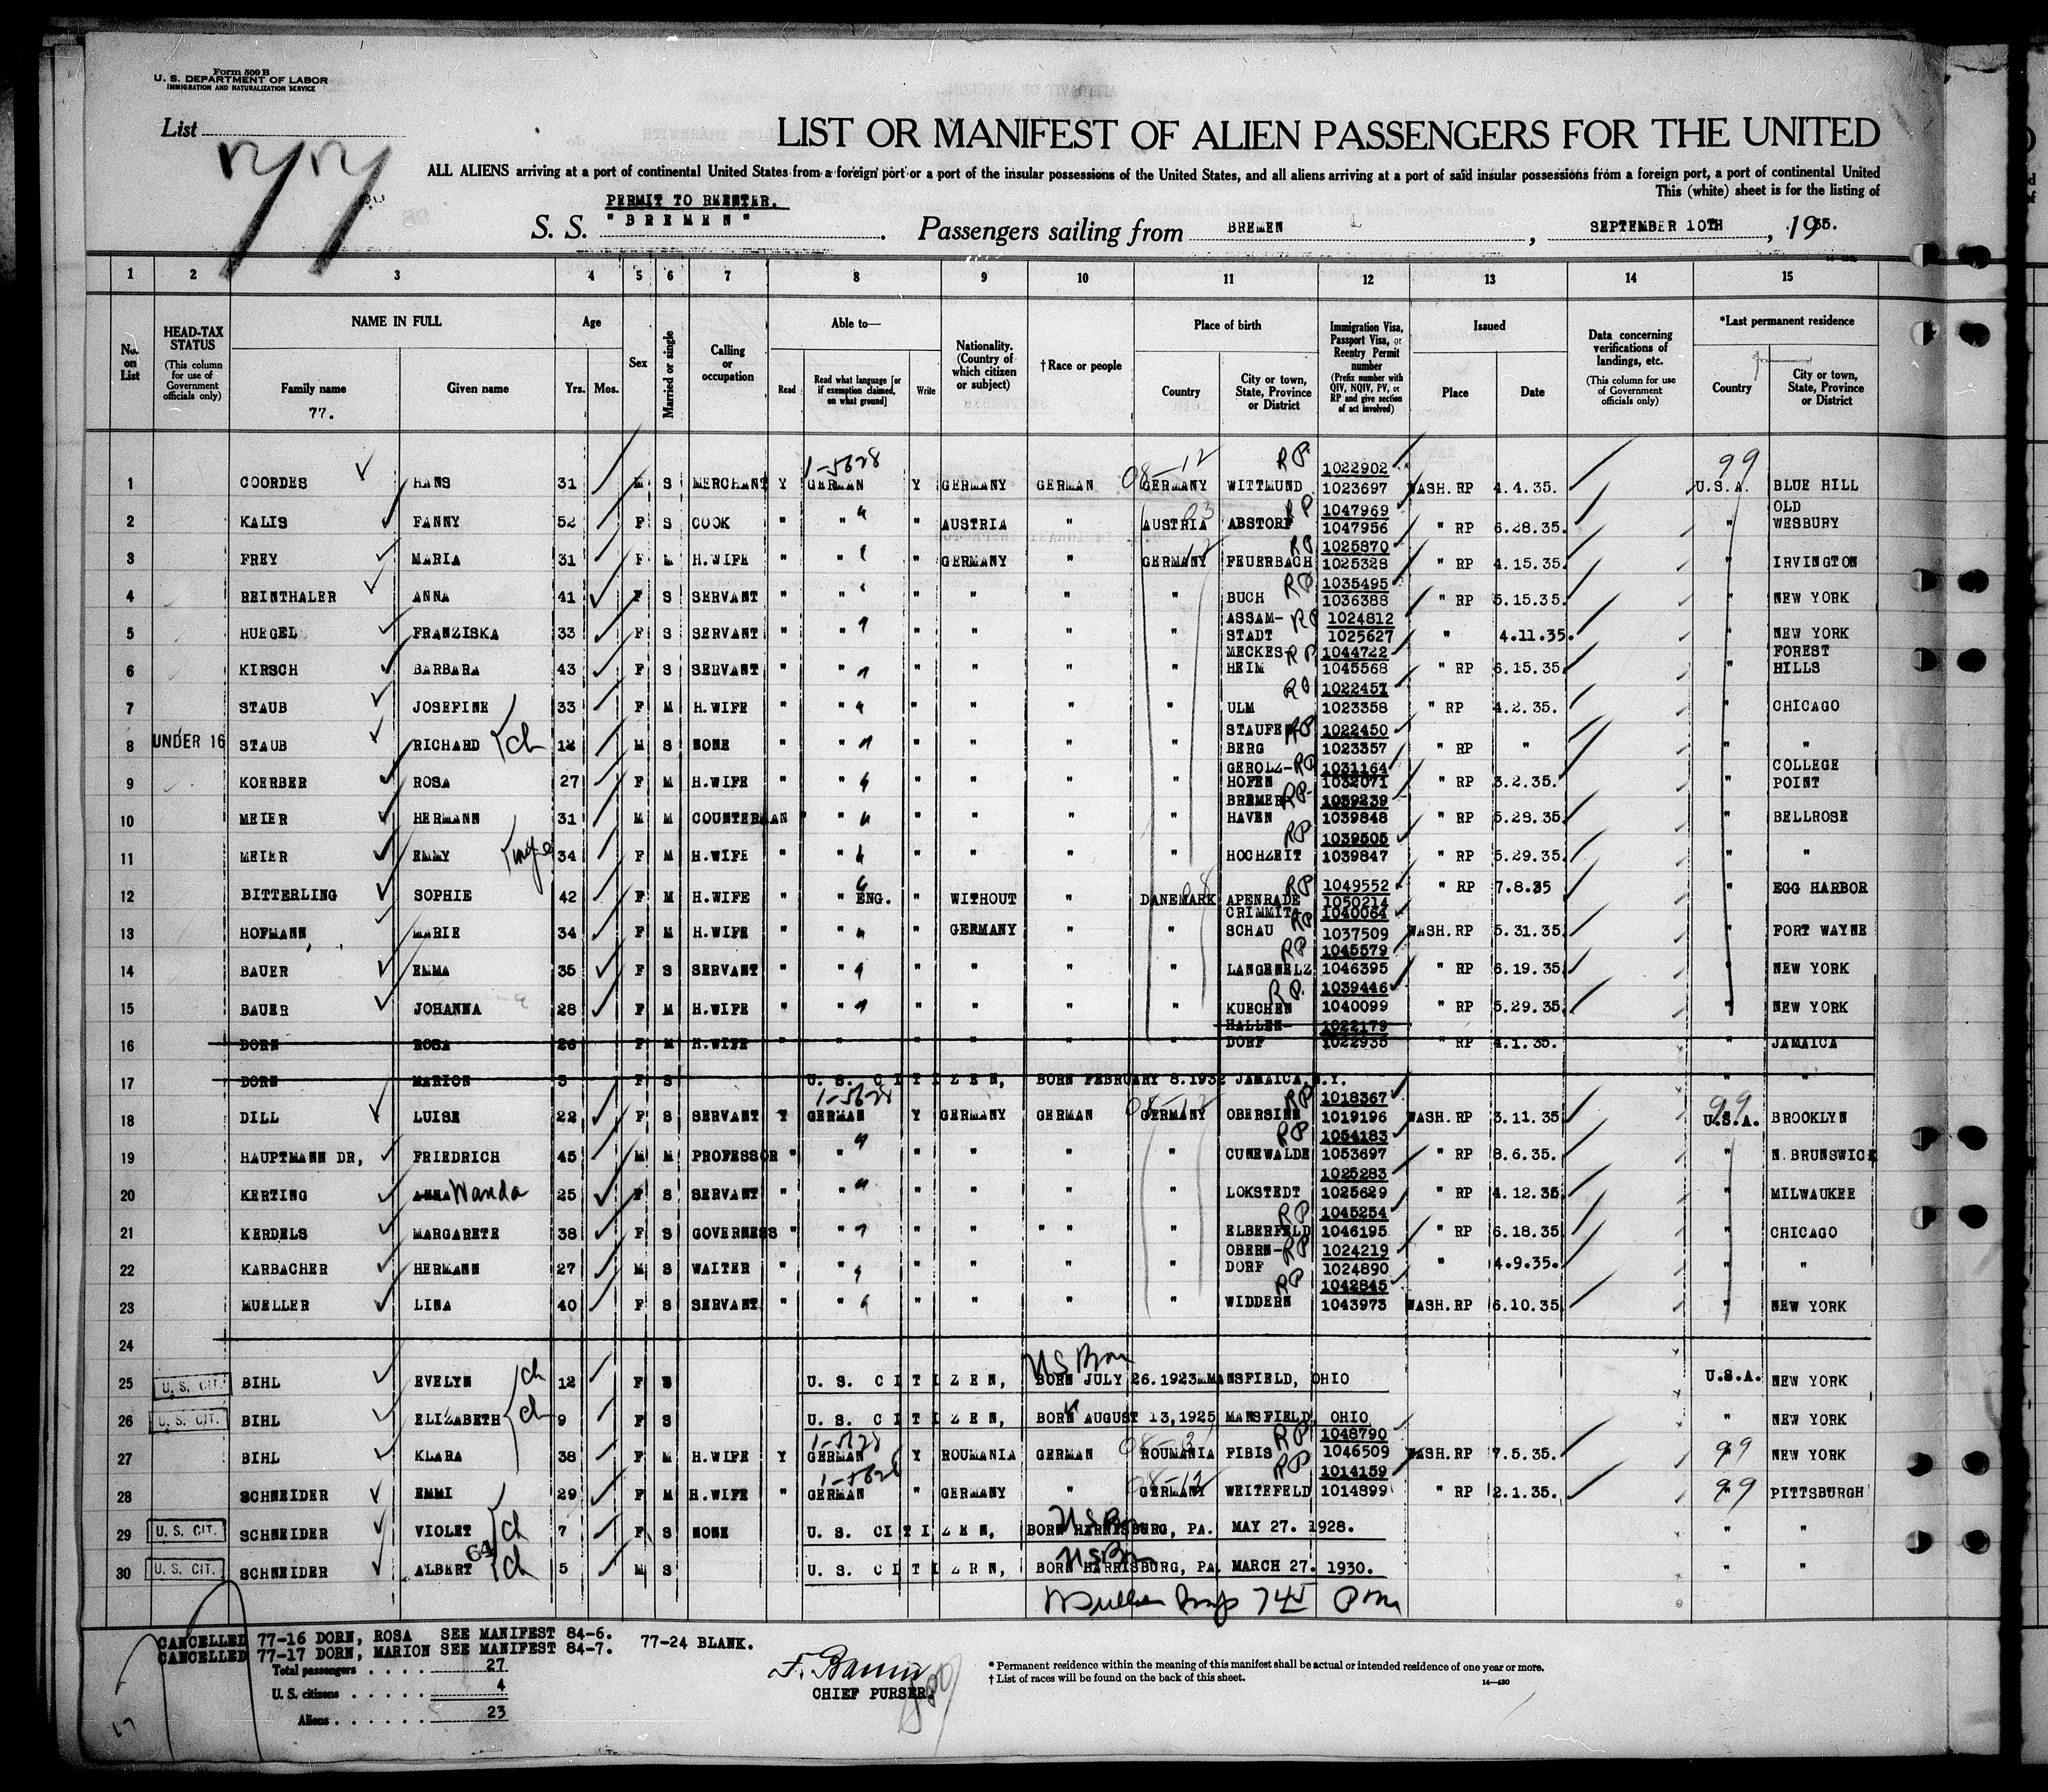 Form 500 B
U. S. DEPARTMENT OF LABOR
IMMIGRATION AND NATURALIZATION SERVICE
List
77
LIST OR MANIFEST OF ALIEN PASSENGERS FOR THE UNITED
ALL ALIENS arriving at a port of continental United States from a foreign port or a port of the insular possessions of the United States, and all aliens arriving at a port of said insular possessions from a foreign port, a port of continental United
This (white) sheet is for the listing of
PERMIT TO REENTER.
S. S. "BREMEN" Passengers sailing from BREMEN, SEPTEMBER 10TH, 1935.
1 2 3 4 5 6 7 8 9 10 11 12 13 14 15
No. on List
HEAD-TAX STATUS (This column for use of Government officials only)
NAME IN FULL
Family name
77.
Given name
Age
Yrs. Mos.
Sex
Married or single
Calling or occupation
Able to—
Read
Read what language [or if exemption claimed, on what ground]
Write
Nationality. (Country of which citizen or subject)
†Race or people
Place of birth
Country
City or town, State, Province or District
Immigration Visa, Passport Visa, or Reentry Permit number (Prefix number with QIV, NQIV, PV, or RP and give section of act involved)
Issued
Place
Date
Data concerning verifications of landings, etc. (This column for use of Government officials only)
*Last permanent residence
Country
City or town, State, Province or District
1-5628 08-12 RP 1022902 99
1 COORDES HANS 31 M S MERCHANT Y GERMAN Y GERMANY GERMAN GERMANY WITTMUND 1023697 WASH. RP 4.4.35. U.S.A. BLUE HILL
03 RP 1047969 OLD
2 KALIS FANNY 52 F S COOK " " " AUSTRIA " AUSTRIA ABSTORF 1047956 " RP 6.28.35. " WESBURY
12 RP 1025870
3 FREY MARIA 31 F M H.WIFE " " " GERMANY " GERMANY FEUERBACH 1025328 " RP 4.15.35. " IRVINGTON
RP 1035495
4 REINTHALER ANNA 41 F S SERVANT " " " " " " BUCH 1036388 " RP 5.15.35. " NEW YORK
ASSAM- RP 1024812
5 HUEGEL FRANZISKA 33 F S SERVANT " " " " " " STADT 1025627 " 4.11.35. " NEW YORK
MECKES- RP 1044722 FOREST
6 KIRSCH BARBARA 43 F S SERVANT " " " " " " HEIM 1045568 " RP 6.15.35. " HILLS
RP 1022457
7 STAUB JOSEFINE 33 F M H.WIFE " " " " " " ULM 1023358 " RP 4.2.35. " CHICAGO
STAUFEN RP 1022450
8 UNDER 16 STAUB RICHARD ch 12 M S NONE " " " " " " BERG 1023357 " RP " " "
GEROLZ- RP 1031164 COLLEGE
9 KOERBER ROSA 27 F M H.WIFE " " " " " " HOFEN 1032071 " RP 3.2.35. " POINT
BREMER RP 1039239
10 MEIER HERMANN 31 M M COUNTERMAN " " " " " " HAVEN 1039848 " RP 5.28.35. " BELLROSE
RP 1039505
11 MEIER EMMY 34 F M H.WIFE " " " " " " HOCHZEIT 1039847 " RP 5.29.35. " "
08 RP 1049552
12 BITTERLING SOPHIE 42 F M H.WIFE " " ENG. " WITHOUT " DANEMARK APENRADE 1050214 " RP 7.8.35 " EGG HARBOR
CRIMMIT- RP 1040064
13 HOFMANN, MARIE 34 F M H.WIFE " " " GERMANY " " SCHAU 1037509 WASH. RP 5.31.35. " FORT WAYNE
RP 1045579
14 BAUER EMMA 35 F S SERVANT " " " " " " LANGENELZ 1046395 " RP 6.19.35. " NEW YORK
RP. 1039446
15 BAUER JOHANNA 28 F M H.WIFE " " " " " " KUECHEN 1040099 " RP 5.29.35. " NEW YORK
HALLEN- 1022179
16 DORN ROSA 26 F M H.WIFE " " " " " " DORF 1022935 " RP 4.1.35. " JAMAICA
17 DORN MARION 3 F S U.S. CITIZEN, BORN FEBRUARY 8.1932 JAMAICA,N.Y. " "
1-5628 08-12 RP 1018367 99
18 DILL LUISE 22 F S SERVANT Y GERMAN Y GERMANY GERMAN GERMANY OBERSINN 1019196 WASH. RP 3.11.35 U.S.A. BROOKLYN
RP 1054183
19 HAUPTMANN DR, FRIEDRICH 45 M M PROFESSOR " " " " " " CUNEWALDE 1053697 " RP 8.6.35. " N.BRUNSWICK
1025283
20 KERTING ANNA Wanda 25 F S SERVANT " " " " " " LOKSTEDT 1025629 " RP 4.12.35. " MILWAUKEE
RP 1045254
21 KERDELS MARGARETE 38 F S GOVERNESS " " " " " " " ELBERFELD 1046195 " RP 6.18.35. " CHICAGO
OBERN- RP 1024219
22 KARBACHER HERMANN 27 M S WAITER " " " " " " DORF 1024890 " 4.9.35. " "
RP 1042845
23 MUELLER LINA 40 F S SERVANT " " " " " " WIDDERN 1043973 WASH. RP 6.10.35. " NEW YORK
24
US Born
25 U. S. CIT. BIHL EVELYN ch 12 F S U. S. CITIZEN, BORN JULY 26.1923 MANSFIELD, OHIO U.S.A. NEW YORK
26 U. S. CIT. BIHL ELIZABETH ch 9 F S U. S. CITIZEN, BORN AUGUST 13,1925 MANSFIELD, OHIO " NEW YORK
1-5628 RP 1048790
27 BIHL KLARA 38 F M H.WIFE Y GERMAN Y ROUMANIA GERMAN ROUMANIA FIBIS 1046509 WASH. RP 7.5.35. 99 NEW YORK
1-5628 08-12 RP 1014159
28 SCHNEIDER EMMI 29 F M H.WIFE " GERMAN " GERMANY " GERMANY WEITEFELD 1014899 " RP 2.1.35. 99 PITTSBURGH
US Born
29 U. S. CIT. SCHNEIDER VIOLET ch 7 F S NONE U. S. CITIZEN, BORN HARRISBURG, PA. MAY 27. 1928. " "
64 US Born
30 U. S. CIT. SCHNEIDER ALBERT ch 5 M S U. S. CITIZEN, BORN HARRISBURG, PA. MARCH 27. 1930. " "
CANCELLED 77-16 DORN, ROSA SEE MANIFEST 84-6. 77-24 BLANK.
CANCELLED 77-17 DORN, MARION SEE MANIFEST 84-7.
Total passengers . . . . 27
U. S. citizens . . . . . 4
Aliens . . . . . . 23
CHIEF PURSER.
* Permanent residence within the meaning of this manifest shall be actual or intended residence of one year or more.
† List of races will be found on the back of this sheet.
14—430